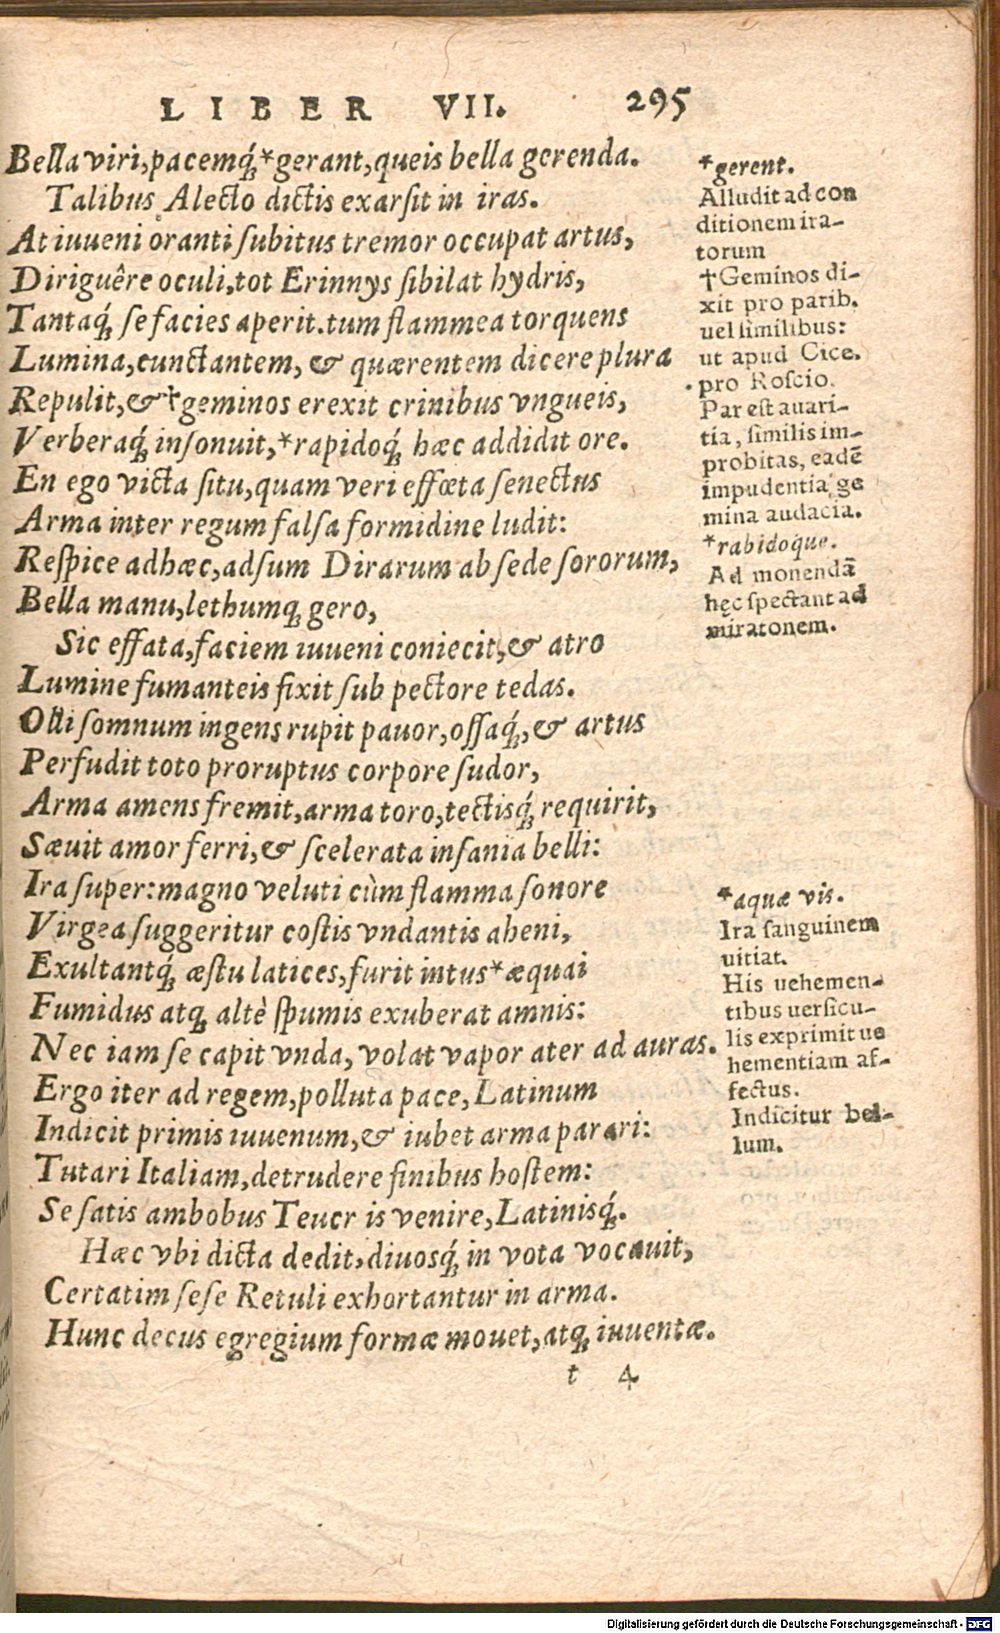 LIBER VII. 295
Bella viri, pacemq́; *gerant, queis bella gerenda.
Talibus Alecto dictis exarſit in iras.
At iuueni oranti ſubitus tremor occupat artus,
Diriguêre oculi, tot Erinnys ſibilat hydris,
Tantaq́; ſe facies aperit. tum flammea torquens
Lumina, cunctantem, & quærentem dicere plura
Repulit, & †geminos erexit crinibus vngueis,
Verberaq́; inſonuit, *rapidoq́; hæc addidit ore.
En ego victa ſitu, quam veri effœta ſenectus
Arma inter regum falſa formidine ludit:
Reſpice ad hæc, adſum Dirarum ab ſede ſororum,
Bella manu, lethumq; gero,
Sic effata, faciem iuueni coniecit, & atro
Lumine fumanteis fixit ſub pectore tedas.
Olli ſomnum ingens rupit pauor, oſſaq́;, & artus
Perfudit toto proruptus corpore ſudor,
Arma amens fremit, arma toro, tectisq́; requirit,
Sæuit amor ferri, & ſcelerata inſania belli:
Ira ſuper: magno veluti cùm flamma ſonore
Virgea ſuggeritur coſtis vndantis aheni,
Exultantq́; æſtu latices, furit intus *æquai
Fumidus atq; altè ſpumis exuberat amnis:
Nec iam ſe capit vnda, volat vapor ater ad auras.
Ergo iter ad regem, polluta pace, Latinum
Indicit primis iuuenum, & iubet arma parari:
Tutari Italiam, detrudere finibus hoſtem:
Se ſatis ambobus Teucr is venire, Latinisq́;.
Hæc vbi dicta dedit, diuosq́; in vota vocauit,
Certatim ſeſe Retuli exhortantur in arma.
Hunc decus egregium formæ mouet, atq; iuuentæ.
t 4
*gerent.
Alludit ad con
ditionem ira-
torum
†Geminos di-
xit pro parib.
uel ſimilibus:
ut apud Cice.
pro Roſcio.
Par eſt auari-
tia, ſimilis im-
probitas, eadē
impudentia, ge
mina audacia.
*rabidoque.
Ad monendā
hęc ſpectant ad
miratonem.
*aquæ vis.
Ira ſanguinem
uitiat.
His uehemen-
tibus uerſicu-
lis exprimit ue
hementiam af-
fectus.
Indicitur bel-
lum.
Digitalisierung gefördert durch die Deutsche Forschungsgemeinschaft - DFG